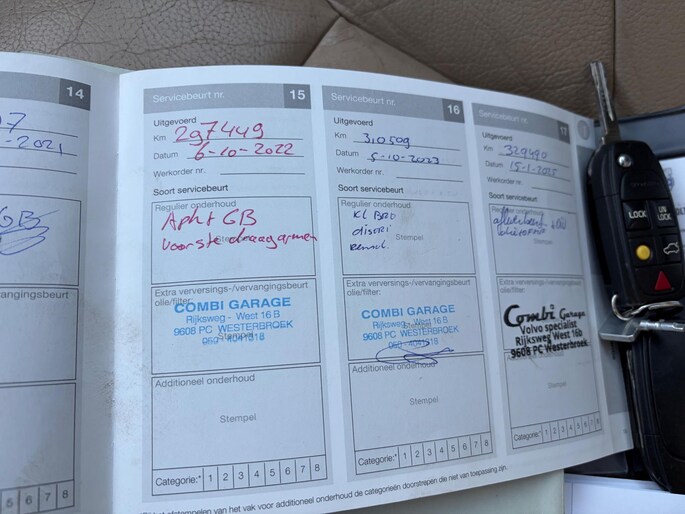 14
-2021
5 6 7 8
Servicebeurt nr. 15
Uitgevoerd
Km 297449
Datum 6-10-2022
Werkorder nr.
Soort servicebeurt
Regulier onderhoud
Apk + GB
voorste draagarmen
Stempel
Extra verversings-/vervangingsbeurt
olie/filter:
COMBI GARAGE
Rijksweg - West 16 B
9608 PC WESTERBROEK
050 - 4041818
Stempel
Additioneel onderhoud
Stempel
Categorie:* 1 2 3 4 5 6 7 8
Servicebeurt nr. 16
Uitgevoerd
Km 310509
Datum 5-10-2023
Werkorder nr.
Soort servicebeurt
Regulier onderhoud
Kl BRD
Stempel
Extra verversings-/vervangingsbeurt
olie/filter:
COMBI GARAGE
Rijksweg - West 16 B
9608 PC WESTERBROEK
050 - 4041818
Additioneel onderhoud
Stempel
Categorie:* 1 2 3 4 5 6 7 8
Servicebeurt nr. 17
Uitgevoerd
Km 329490
Datum 15-1-2025
Werkorder nr.
Soort servicebeurt
Regulier onderhoud
Stempel
Extra verversings-/vervangingsbeurt
olie/filter:
Combi Garage
Volvo specialist
Rijksweg West 16b
9608 PC Westerbroek
Additioneel onderhoud
Stempel
Categorie:* 1 2 3 4 5 6 7 8
afstempelen van het vak voor additioneel onderhoud de categorieën doorstrepen die niet van toepassing zijn.
LOCK
UN LOCK